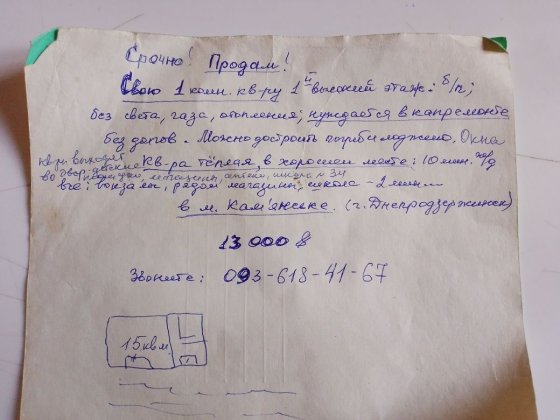 Срочно! Продам!
Свою 1 комн. кв-ру 1й высокий этаж: б/п;
без света, газа, отопления; нуждается в капремонте
без долгов. Можно достроить погреб и лоджию. Окна
кв-ры выходят во двор, детские площадки, магазины, аптеки, школа № 34
Кв-ра тёплая, в хорошем месте: 10 мин. жд
все: вокзалы, рядом магазины, школа - 2 мин...
в м. Кам'янське. (г. Днепродзержинск)
13 000 $
Звоните: 093-613-41-67
15 кв м